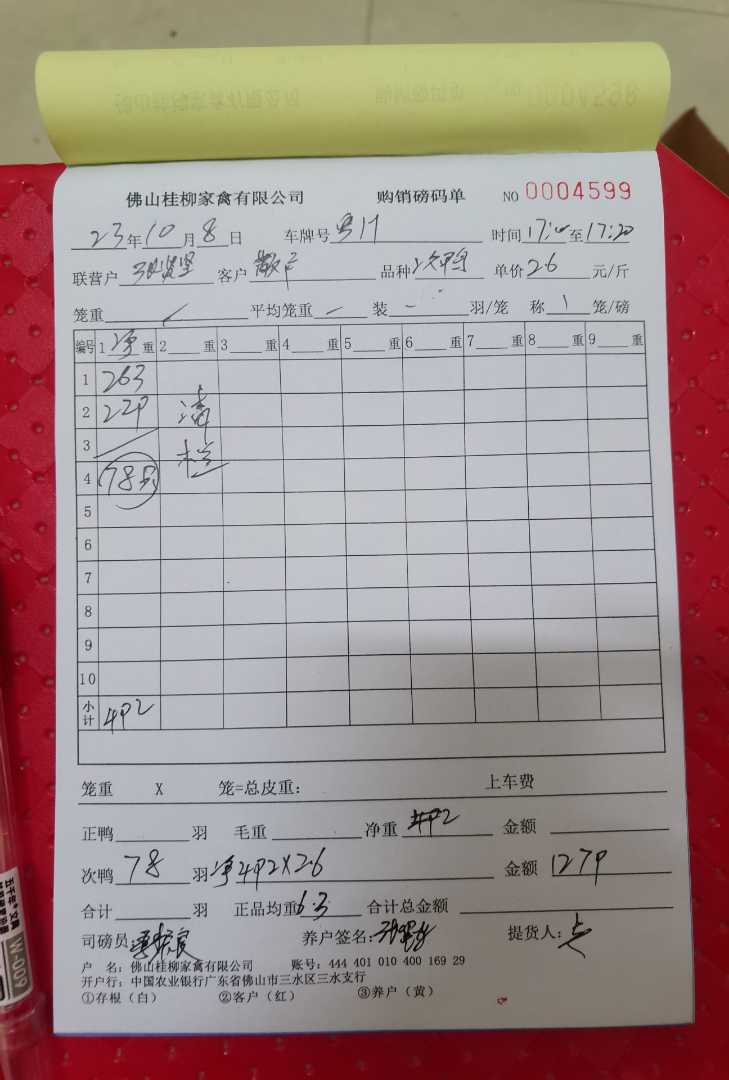 佛山桂柳家禽有限公司 购销磅码单 NO 0004599
23年10月8日 车牌号 时间 17:10至17:20
联营户 客户 散户 品种 次鸭 单价 2.6 元/斤
笼重 平均笼重 装 羽/笼 称 1 笼/磅
编号 1 净 重 2 重 3 重 4 重 5 重 6 重 7 重 8 重 9 重
1 263
2 229 清
3 栏
4 78只
5
6
7
8
9
10
小计 492
笼重 X 笼=总皮重: 上车费
正鸭 羽 毛重 净重 492 金额
次鸭 78 羽 净492X2.6 金额 1279
合计 羽 正品均重 6.3 合计总金额
司磅员 养户签名: 提货人:
户 名: 佛山桂柳家禽有限公司 账号: 444 401 010 400 169 29
开户行: 中国农业银行广东省佛山市三水区三水支行
①存根(白) ②客户(红) ③养户(黄)
W-009